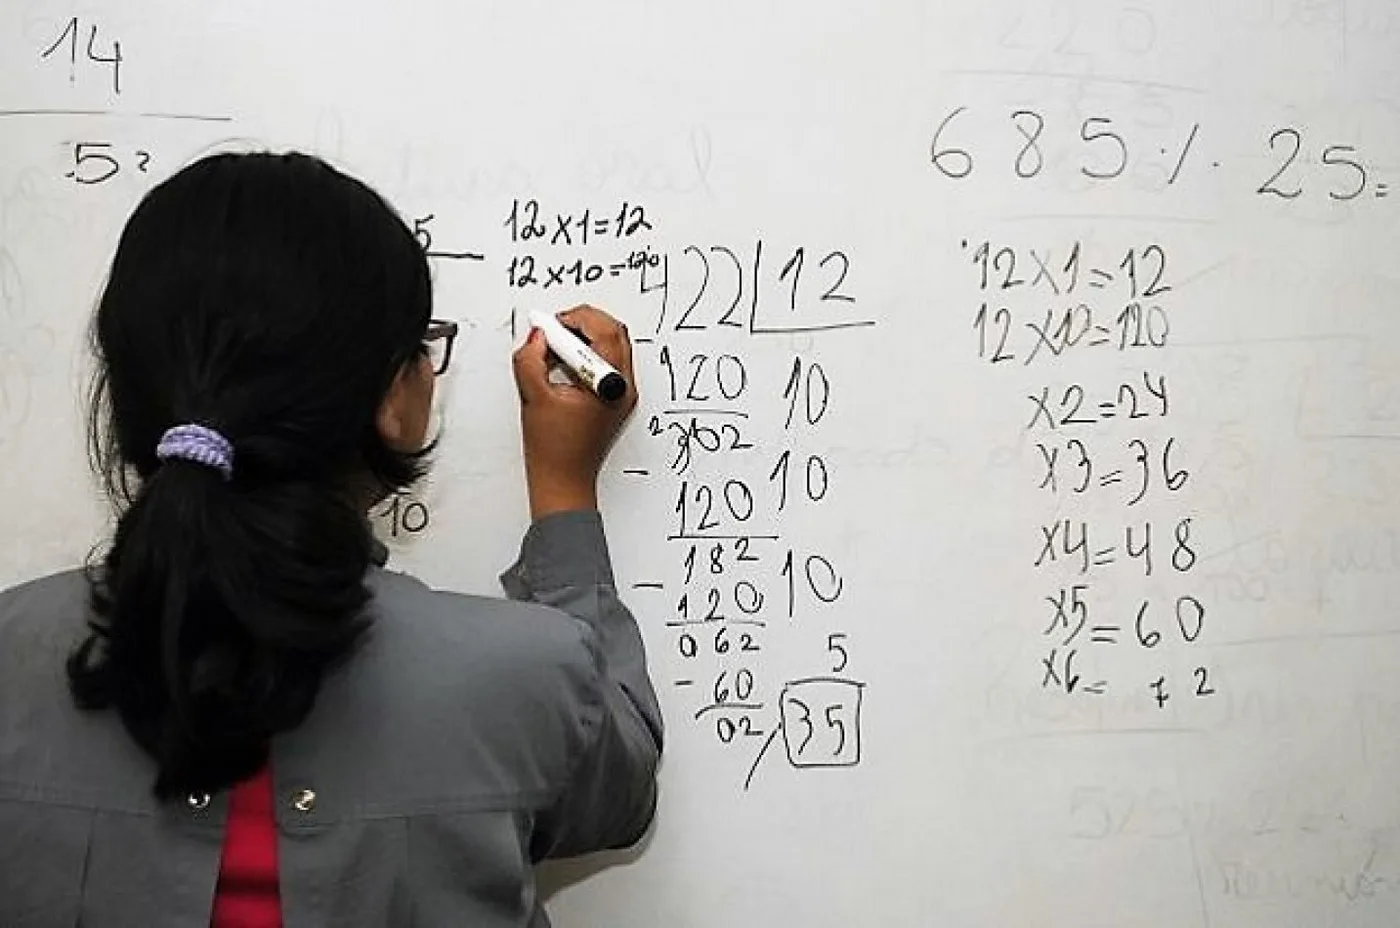 14
5
685 ·/· 25=
5
12x1=12
12x10=120
422 | 12
- 120 10
302
- 120 10
182
- 120 10
062 5
- 60
02 35
10
12x1=12
12x10=120
x2=24
x3=36
x4=48
x5=60
x6=72